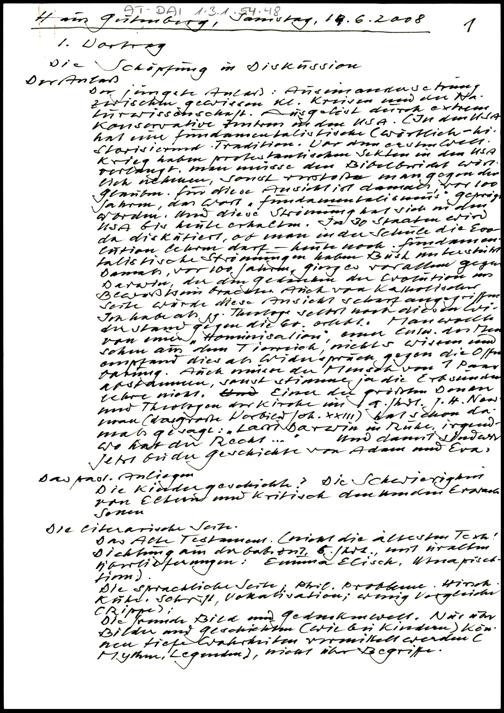 AT-DAI 1.3.1.-54.-48
Haus Gutenberg, Samstag, 14.6.2008 1
1. Vortrag
Die Schöpfung in Diskussion
Der Anlaß
Der jüngste Anlaß: Auseinandersetzung
zwischen gewissen kl. Kreisen und der Na-
turwissenschaft. Ausgelöst durch extrem
konservative Zentren in den USA. (In den USA
hat eine fundamentalistische (wörtlich-hi-
storisierend Tradition. Vor dem ersten Welt-
krieg haben protestantischen Sekten in den USA
verlangt, man müsse den Bibelbericht wört-
lich nehmen, sonst verstoße man gegen den
Glauben. Für diese Ansicht ist damals, vor 100
Jahren, das Wort "Fundamentalismus" geprägt
worden. Und diese Strömung hat sich in den
USA bis heute erhalten. In 30 Staaten wird
da diskutiert, ob man in der Schule die Evo-
lution lehren darf - heute noch. Fundamen-
talistische Strömungen haben Bush unterstützt
Damals, vor 100 Jahren, ging es vor allem gegen
Darwin, der den Gedanken der Evolution ins
Bewußtsein brachte. Auch von katholischer
Seite wurde diese Ansicht scharf angegriffen
Ich habe als jg. Theologe selbst noch diesen Wi-
derstand gegen die Ev. erlebt. Man wollte
von einer "Hominisation", einer Entw. des Men-
schen aus dem Tierreich, nichts wissen und
empfand dies als Widerspruch gegen die Offen-
barung. Auch müsse der Mensch von 1 Paar
abstammen, sonst stimme ja die Erbsünden-
lehre nicht. Einer der größten Denker
und Theologen der Kirche im 19. Jhdt. J.H. New-
man (das große Vorbild Joh. XXIII) hat schon da-
mals gesagt: "Laßt Darwin in Ruhe, irgend-
wo hat der Recht..." Und damit sind wir
jetzt bei der Geschichte von Adam und Eva.
Das past. Anliegen
Die Kindergeschichte? Die Schwierigkeit
von Eltern und kritisch denkenden Erwach-
senen
Die literarische Seite.
Das Alte Testament. (nicht die ältesten Text!
Dichtung aus der 6. Jhdt., mit uralten
Überlieferungen: Enuma Elisch.
Die sprachliche Seite, Phil. Probleme.
Schrift, Vokalisation; wenig Vergleiche
(Rippe);
Die fremde Bild und Gedankenwelt. Nur über
Bilder und Geschichten (wie bei Kindern) kön-
nen tiefe Wahrheiten vermittelt werden (
Mythen, Legenden), nicht über Begriffe.